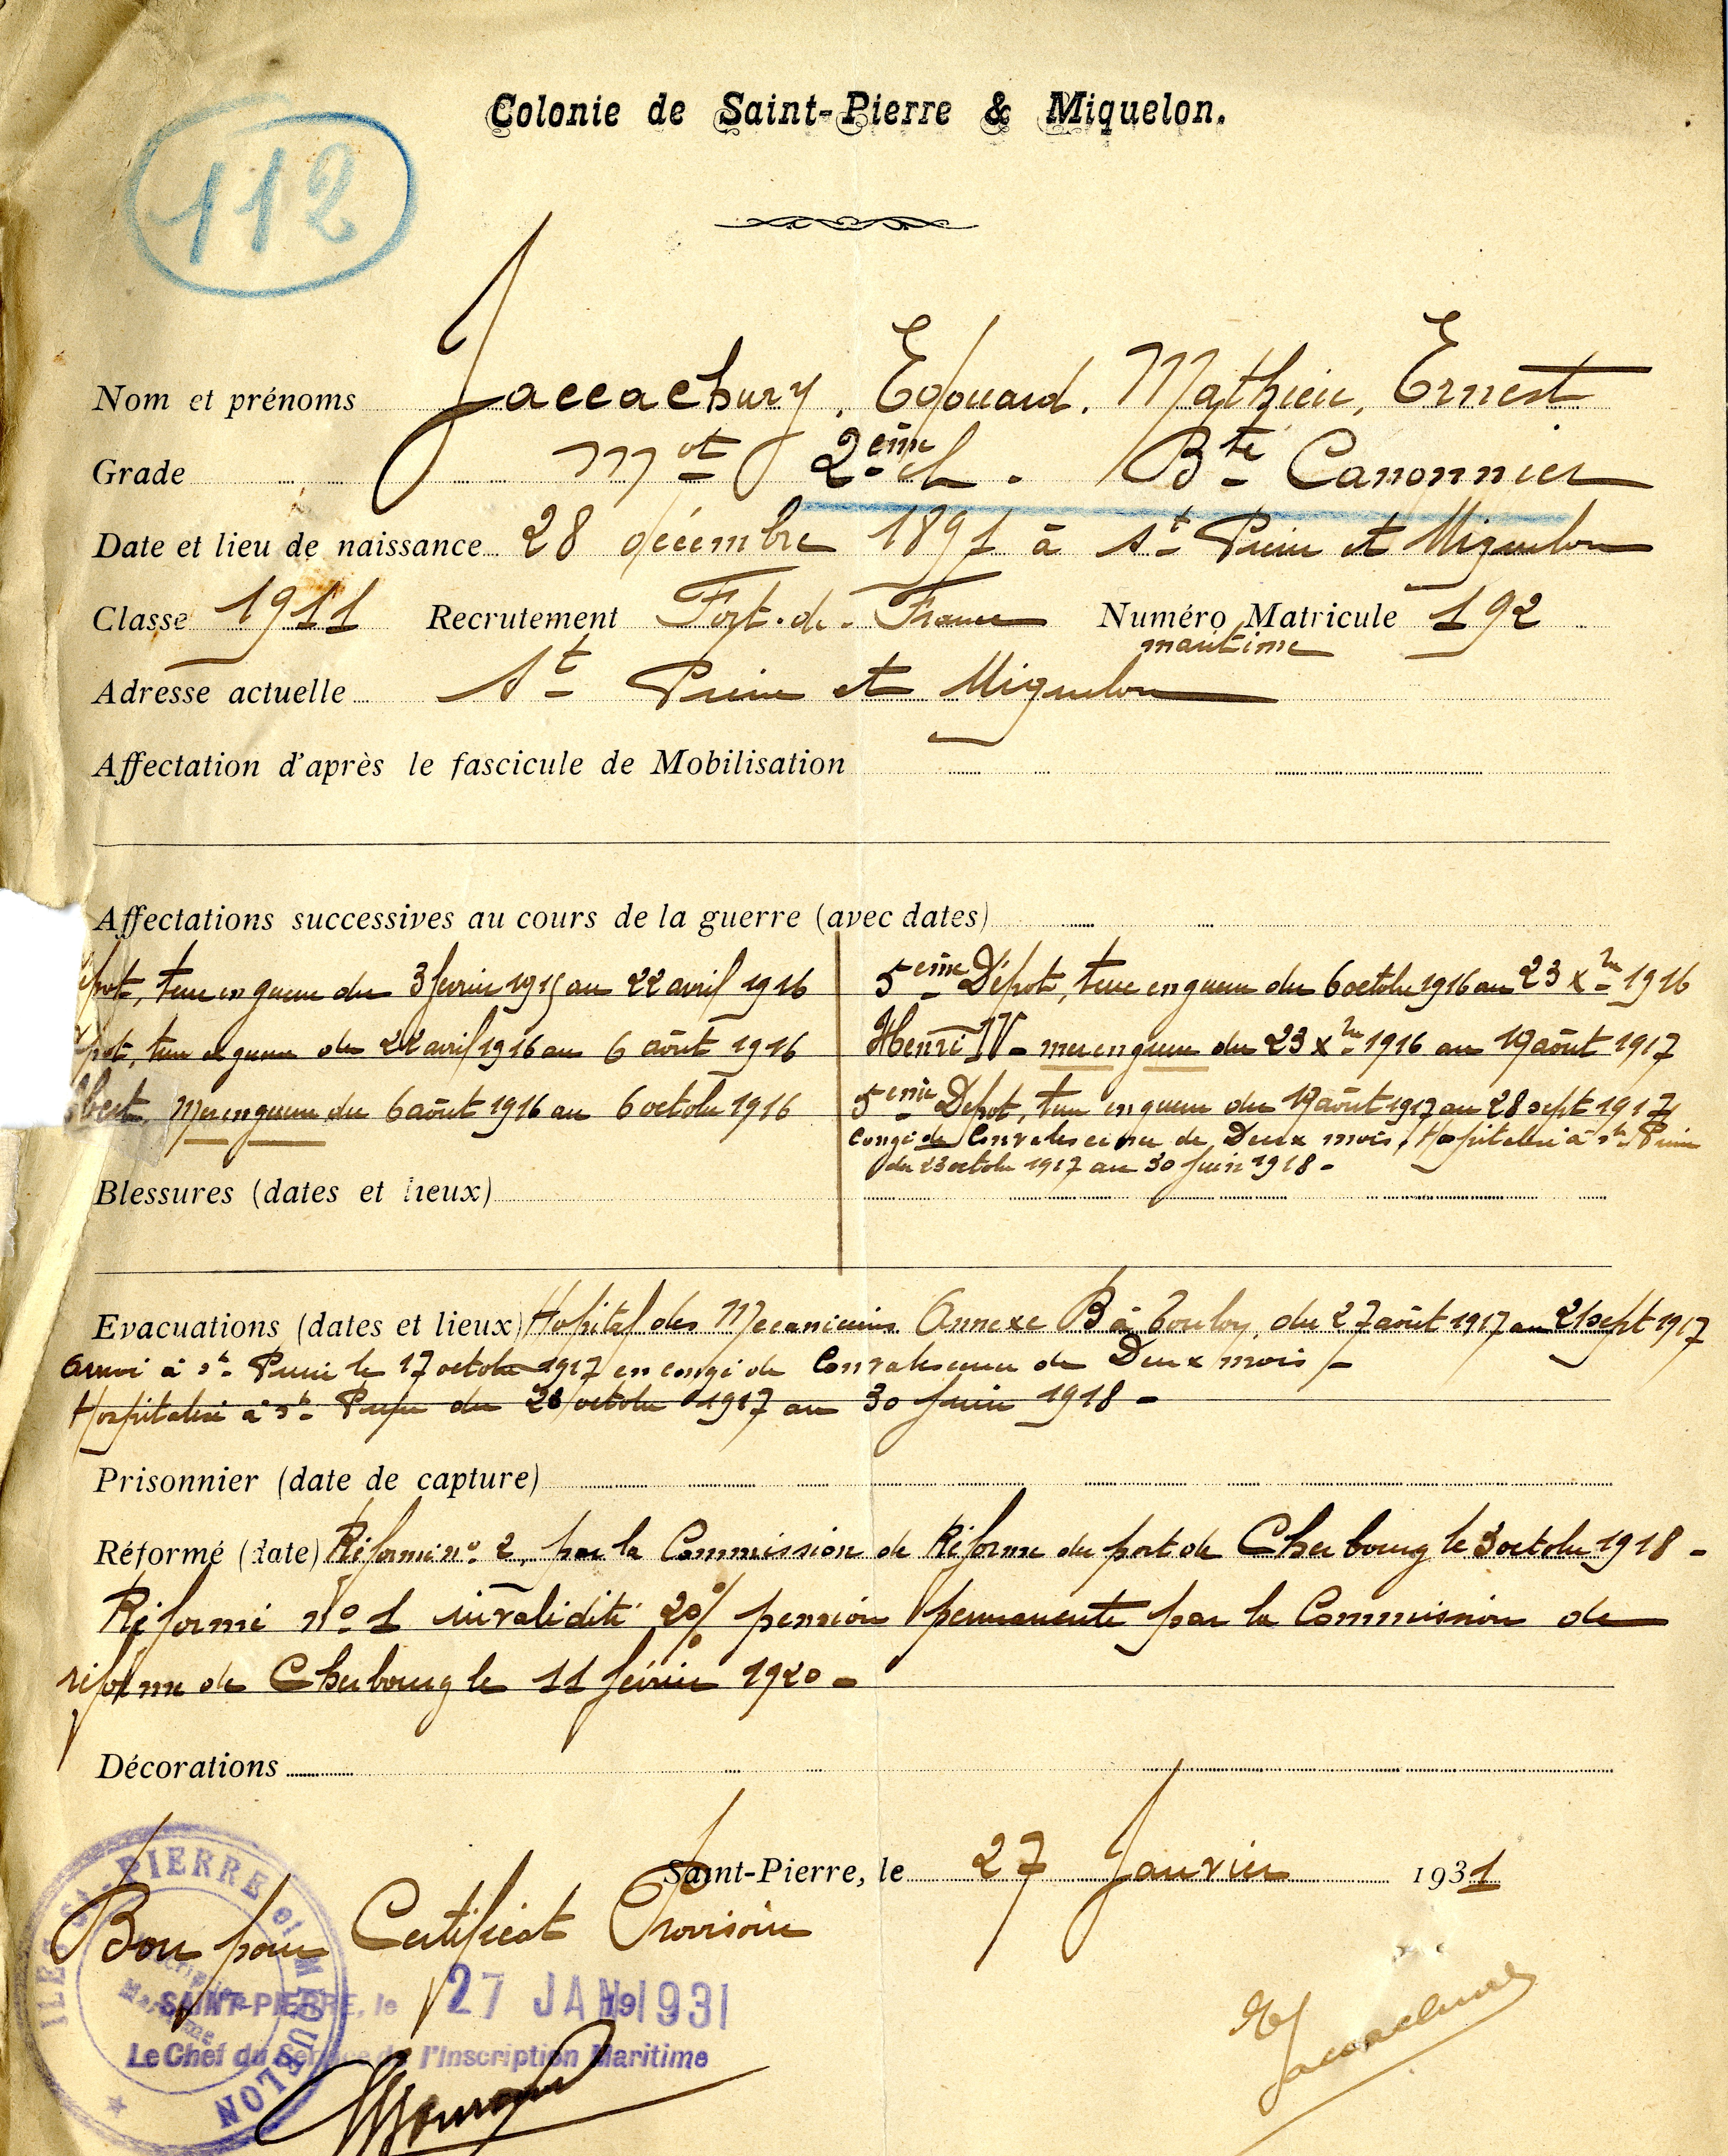 Colonie de Saint-Pierre & Miquelon.
112
Nom et prénoms Jaccachury, Edouard, Mathieu, Ernest
Grade Mot 2ème cl. Bté Canonnier
Date et lieu de naissance 28 décembre 1891 à St Pierre et Miquelon
Classe 1911 Recrutement Fort-de-France Numéro Matricule 192
maritime
Adresse actuelle St Pierre et Miquelon
Affectation d'après le fascicule de Mobilisation
Affectations successives au cours de la guerre (avec dates)
pot, terre en guerre du 3 février 1915 au 22 avril 1916
pot, terre en guerre du 22 avril 1916 au 6 août 1916
Mer en guerre du 6 août 1916 au 6 octobre 1916
5ème Dépôt, terre en guerre du 6 octobre 1916 au 23 Xbre 1916
Henri IV - mer en guerre du 23 Xbre 1916 au 19 août 1917
5ème Dépot, terre en guerre du 19 août 1917 au 28 sept 1917
Congé de Convalescence de Deux mois, Hospitalisé à St Pierre
du 23 octobre 1917 au 30 Juin 1918 -
Blessures (dates et lieux)
Evacuations (dates et lieux) Hopital des Mecaniciens Annexe B à Toulon, du 27 août 1917 au 21 sept 1917
Arrivé à St Pierre le 17 octobre 1917 en congé de Convalescence de Deux mois -
Hospitalisé à St Pierre du 28 octobre 1917 au 30 Juin 1918 -
Prisonnier (date de capture)
Réformé (date) Réformé no 2, par la Commission de Réforme du port de Cherbourg le 3 octobre 1918 -
Réformé No 1 invalidité 20% pension permanente par la Commission de
réforme de Cherbourg le 11 février 1920 -
Décorations
Saint-Pierre, le 27 Janvier 1931
Bon pour Certificat Provisoire
ILES St-PIERRE et MIQUELON
Inscription Maritime
SAINT-PIERRE, le 27 JAN 1931
Le Chef du Service de l'Inscription Maritime
E Jaccachury